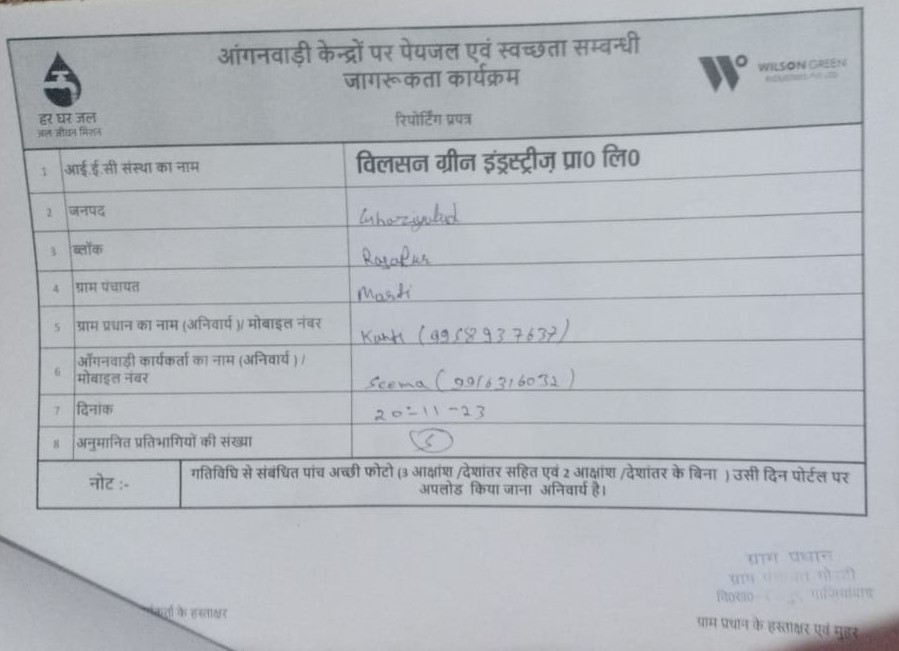 आंगनवाड़ी केन्द्रों पर पेयजल एवं स्वच्छता सम्बन्धी
जागरूकता कार्यक्रम
हर घर जल
जल जीवन मिशन
WILSON GREEN
INDUSTRIES PVT. LTD
रिपोर्टिंग प्रपत्र
1 आई.ई.सी संस्था का नाम विलसन ग्रीन इंड्रस्ट्रीज़ प्रा0 लि0
2 जनपद Ghaziyabad
3 ब्लॉक Rajapur
4 ग्राम पंचायत
5 ग्राम प्रधान का नाम (अनिवार्य )/ मोबाइल नंबर Kanti (9958937637)
6 आँगनवाड़ी कार्यकर्ता का नाम (अनिवार्य ) /
मोबाइल नंबर Seema (9916316032)
7 दिनांक 20-11-23
8 अनुमानित प्रतिभागियों की संख्या 5
नोट :- गतिविधि से संबंधित पांच अच्छी फोटो (3 आक्षांश /देशांतर सहित एवं 2 आक्षांश /देशांतर के बिना ) उसी दिन पोर्टल पर
अपलोड किया जाना अनिवार्य है।
ग्राम प्रधान
ग्राम
के हस्ताक्षर
ग्राम प्रधान के हस्ताक्षर एवं मुहर